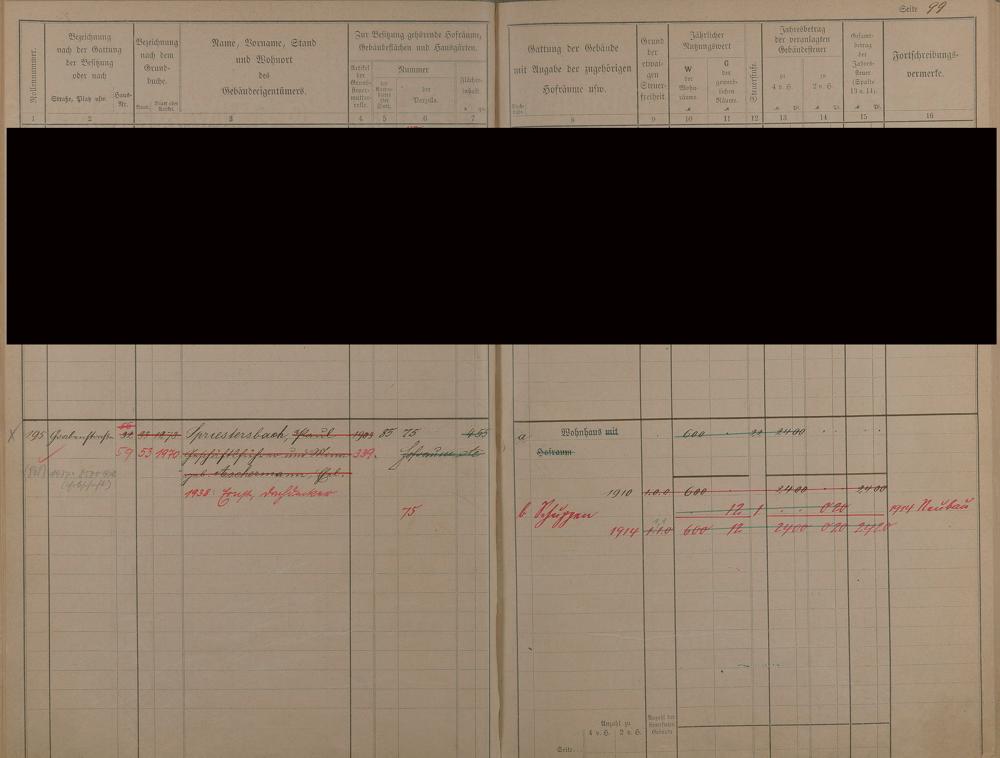 Seite 99
Rollennummer.
Bezeichnung
nach der Gattung
der Besitzung
oder nach
Straße, Platz usw.
Haus-
Nr.
Bezeichnung
nach dem
Grund-
buche.
Band.
Name, Vorname, Stand
und Wohnort
des
Gebäudeeigentümers.
Zur Besitzung gehörende Hofräume,
Gebäudeflächen und Hausgärten.
Artikel
der
Grund-
steuer-
mutter-
rolle.
Nummer
der
Parzelle.
Flächen-
inhalt.
Gattung der Gebäude
mit Angabe der zugehörigen
Hofräume usw.
Grund
der
etwai-
gen
Steuer-
freiheit.
Jährlicher
Nutzungswert
W
der
Wohn-
räume.
G
der
gewerb-
lichen
Räume.
Steuerstufe.
Jahresbetrag
der veranlagten
Gebäudesteuer
zu
4 v. H.
zu
2 v. H.
Gesamt-
betrag
der
Jahres-
steuer
(Spalte
13 u. 14).
Fortschreibungs-
vermerke.
1 2 3 4 5 6 7 8 9 10 11 12 13 14 15 16
X 195 Grabenstraße 31 33 1273 Spriestersbach, Paul 1903 85 75 4 65
66
59 53 1970 Geschäftsführer und 339. Hofraum
geb. Aschermann
1938: Ernst, Dachdecker
75
a Wohnhaus mit 600 21 24 00
Hofraum
1910 1.0.0 600 24 00 24 00
b Schuppen 12 1 0 20 1914 Neubau
1914 1.1.0 600 12 24 00 0 20 24 20
Anzahl zu
4 v. H. 2 v. H.
Anzahl der
steuerfreien
Gebäude
Seite...